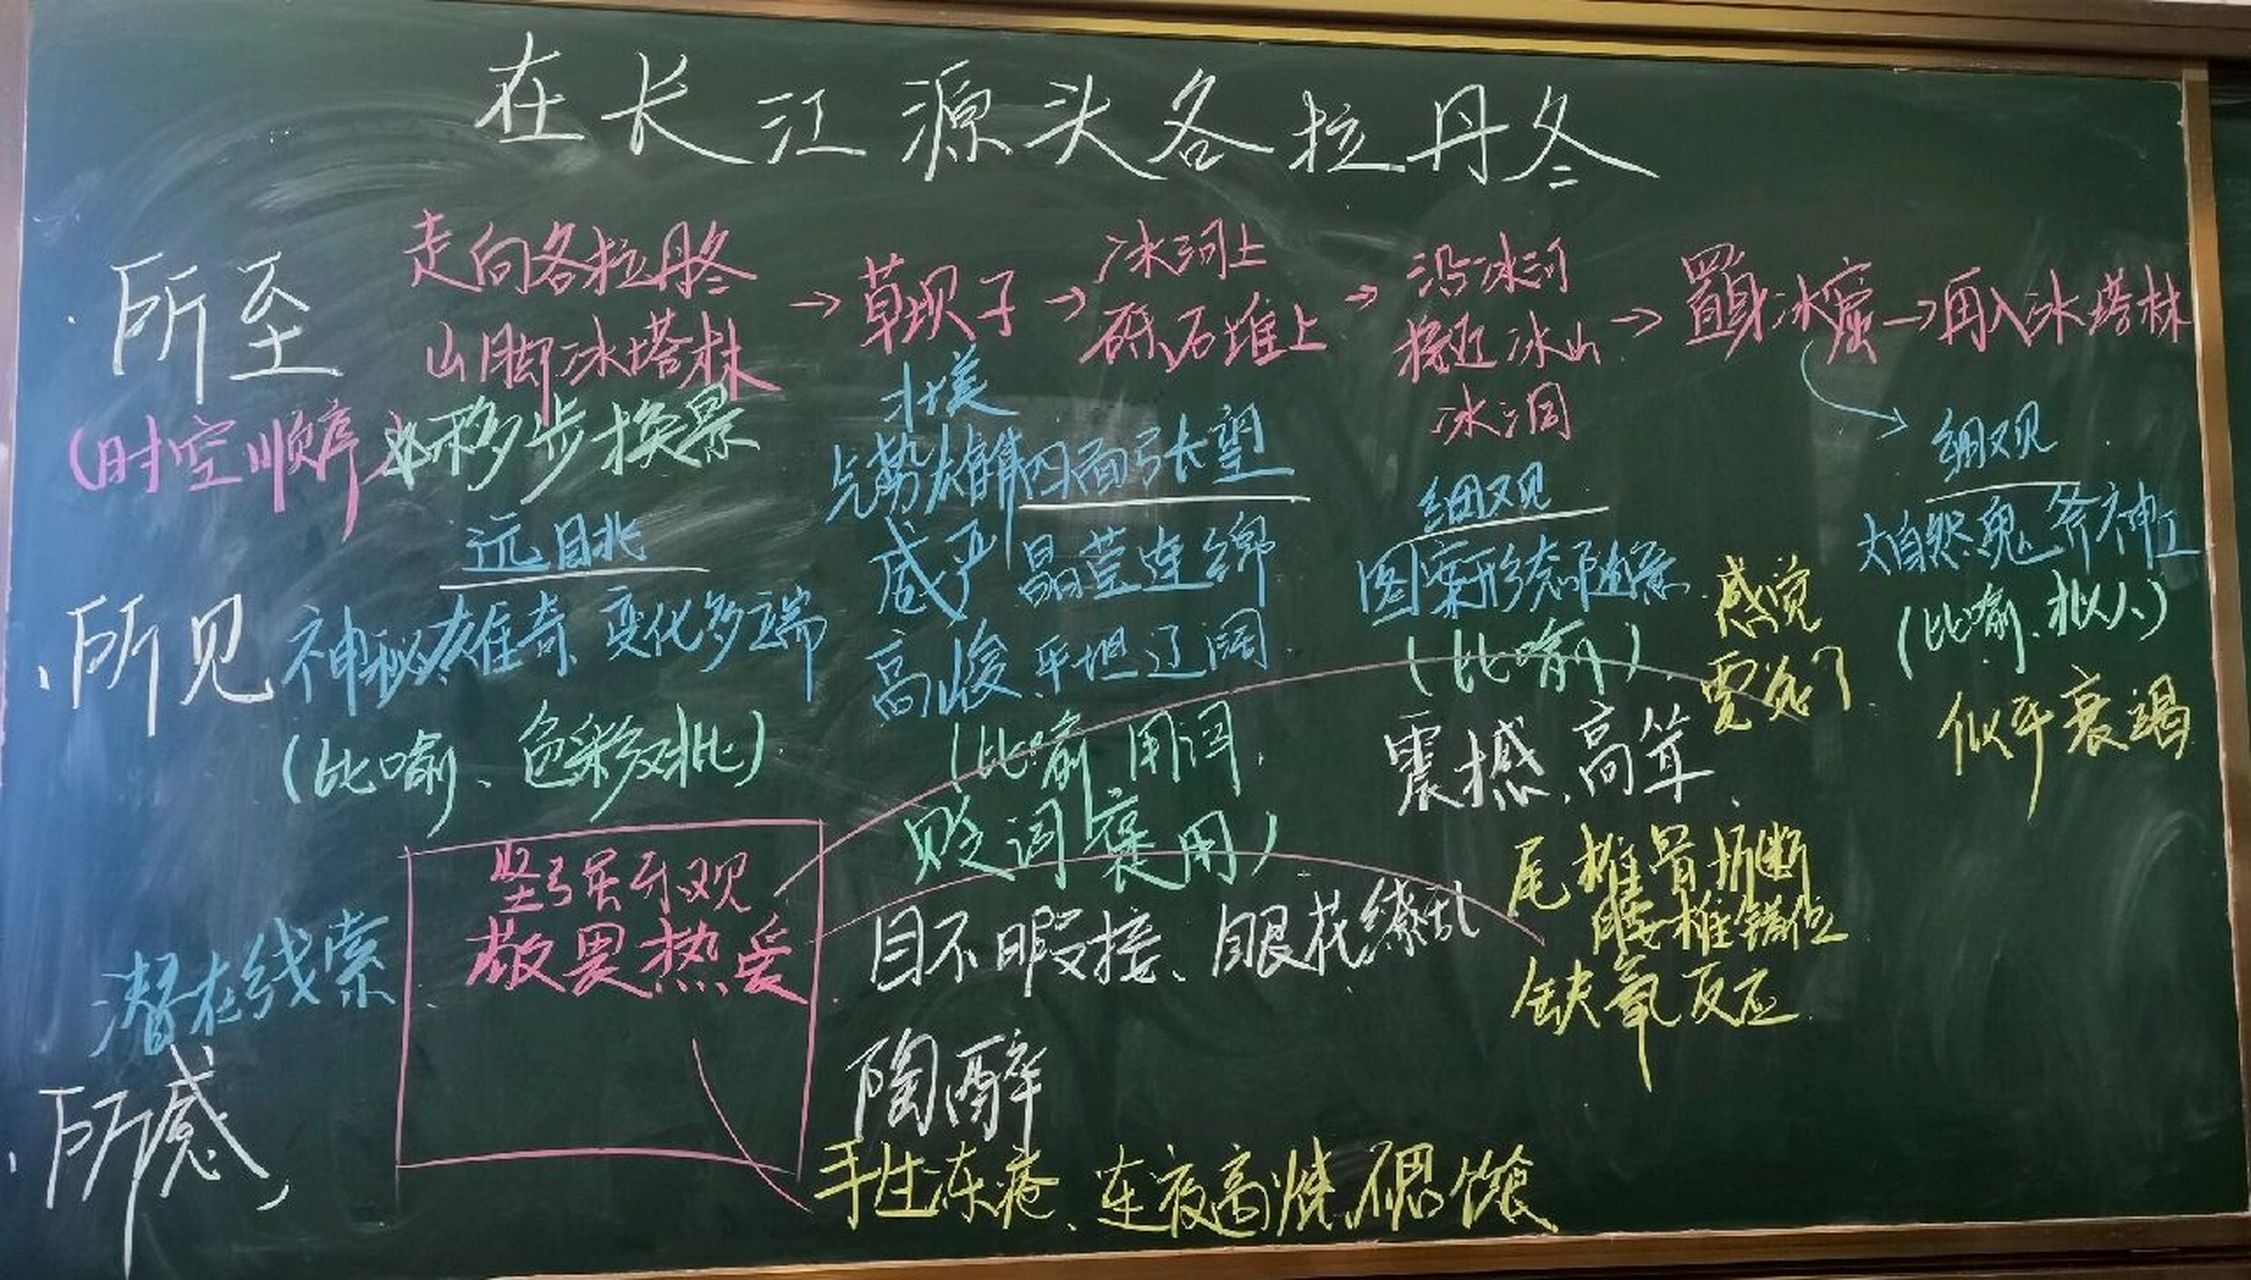 在长江源头各拉丹冬
所至
走向各拉丹冬
山脚冰塔林
→草坝子
→冰河上
砾石堆上
→沿冰河
接近冰山
冰洞
→置身冰窟→再入冰塔林
(时空顺序
移步换景
远眺
气势雄
四面引长望
威严 晶莹连绵
高峻 平坦辽阔
细观
图案形态随意
(比喻)
细观
大自然鬼斧神工
(比喻、拟人)
感觉
要死了
似乎衰竭
所见
神秘雄奇、变化多端
(比喻、色彩对比)
(比喻 用词
贬词褒用)
震撼、高耸
坚强乐观
敬畏热爱
潜在线索
目不暇接、眼花缭乱
尾椎骨折断
腰椎错位
缺氧反应
所感
陶醉
手生冻疮、连夜高烧、不思饮食